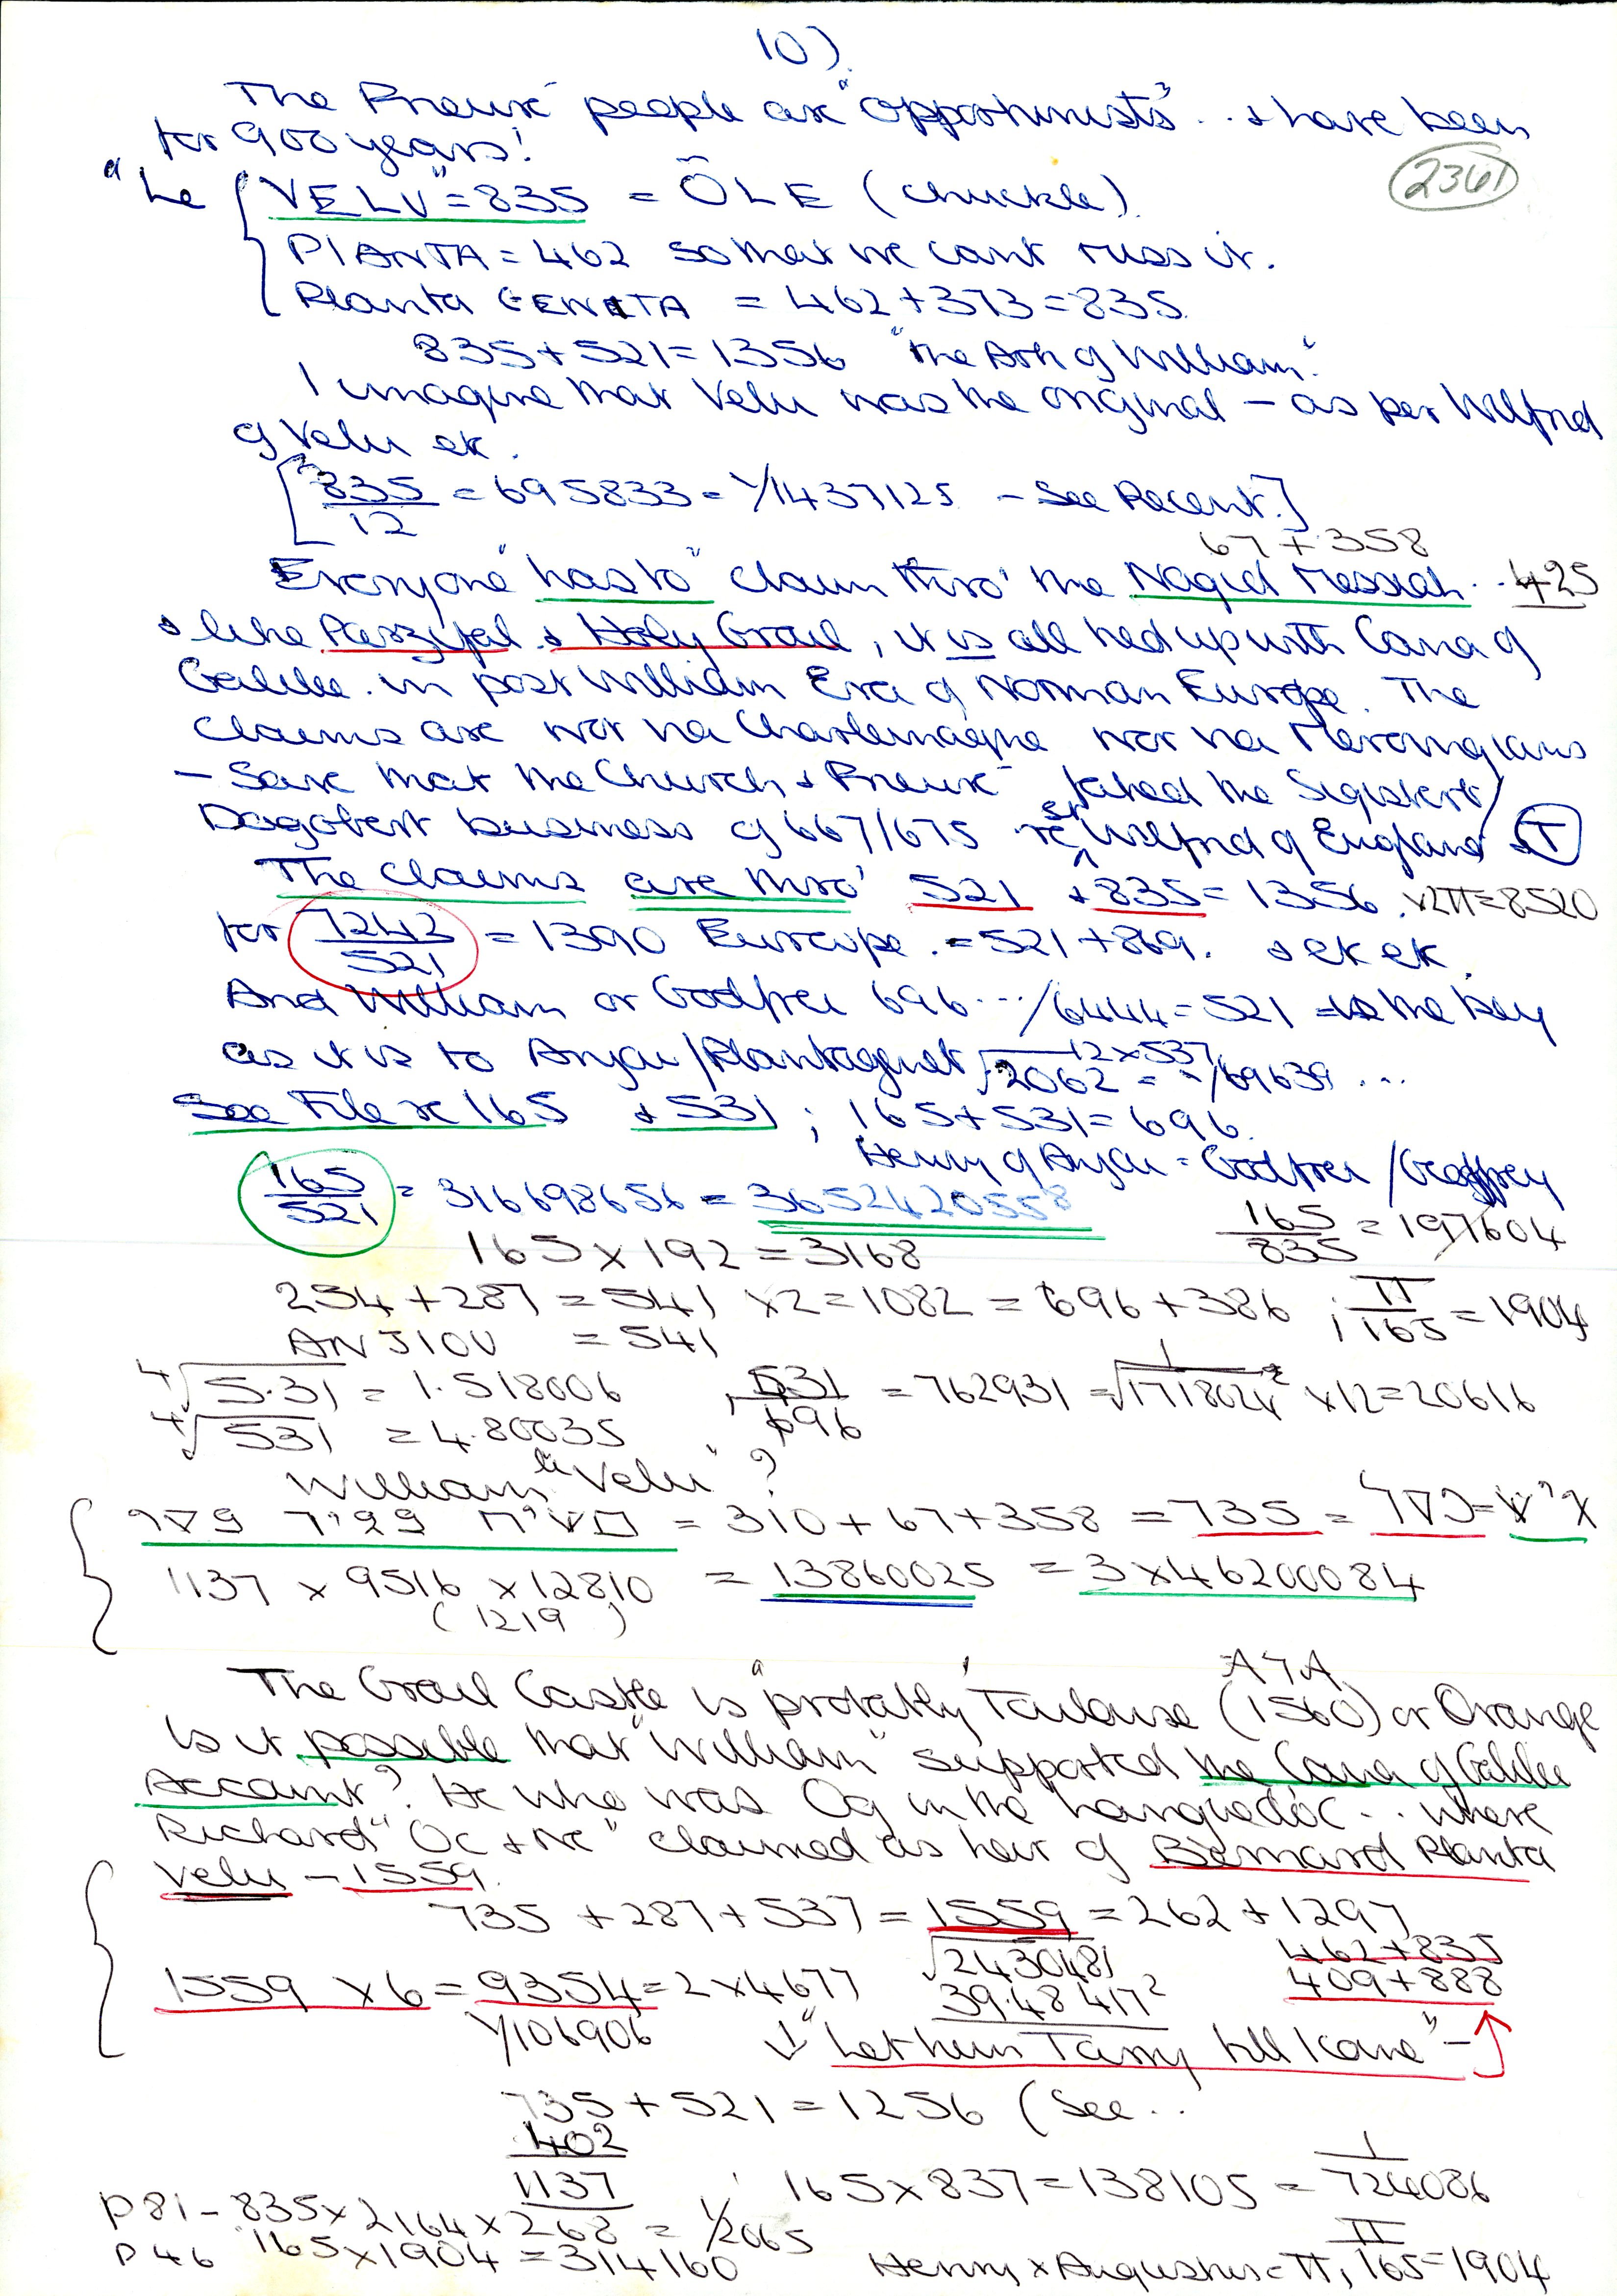 10)
The Prieuré people are "opportunists" .. & have been
for 900 years!
2361
"Le VELU" = 835 = ÕLE (chuckle)
PLANTA = 462 so that we cant miss it.
Planta GENETA = 462 + 373 = 835
835 + 521 = 1356 "The Ark of William".
I imagine that Velu was the original - as per Wilfrid
of Velu etc.
[835/12 = 695833 = 1/1437125 - See Recent.]
67 + 358
Everyone "has to" claim thro' the Nagid Messiah .. 425
& like Parzifal & Holy Grail, it is all tied up with Cana of
Galilee. in post William Era of Norman Europe. The
Claims are not via Charlemagne nor via Merovingians
- Save that the Church & Prieuré faked the Sigisbert/
Dagobert business of 667/675 re St Wilfrid of England & T
The claims are thro' 521 + 835 = 1356. x2π=8520
for 7242/521 = 1390 Europe. = 521 + 869. & etc etc.
And William or Godfrei 696 .../6444 = 521 = is the key
as it is to Anjou/Plantagenet √12x537
2062 = -/69639 ...
See File re 165 & 531 ; 165 + 531 = 696.
Henry of Anjou = Godfrei/Geoffrey
165/521 = 316698656 = 3652420558
165/835 = 197604
165 x 192 = 3168
254 + 287 = 541 x2 = 1082 = 696 + 386 ; π/165 = 1904
ANJIOU = 541
4√5.31 = 1.518006 , 531/696 = 762931 = √1/1718024² x12 = 20616
4√531 = 4.80035
William "le Velu" ?
= 310 + 67 + 358 = 735 =
1137 x 9516 x 12810 = 13860025 = 3 x 46200084
(1219)
A7A
The Grail Castle is "probably" Toulouse (1560) or Orange
Is it possible that "William" supported the Cana of Galilee
Account? He who was Og in the Languedoc .. where
Richard "Oc & Ne" claimed as heir of Bernard Planta
Velu - 1559.
735 + 287 + 537 = 1559 = 262 + 1297
√2430481
462 + 835
1559 x 6 = 9354 = 2 x 4677
39.48417²
409 + 888
1/106906
↓ "Let him Tarry till I come" -
735 + 521 = 1256 (See ..
402
1137
165 x 837 = 138105 = 1/724086
P81 - 835 x 2164 x 268 = 1/2065
P46 165 x 1904 = 314160
Henry x Augustus = π, π/165 = 1904